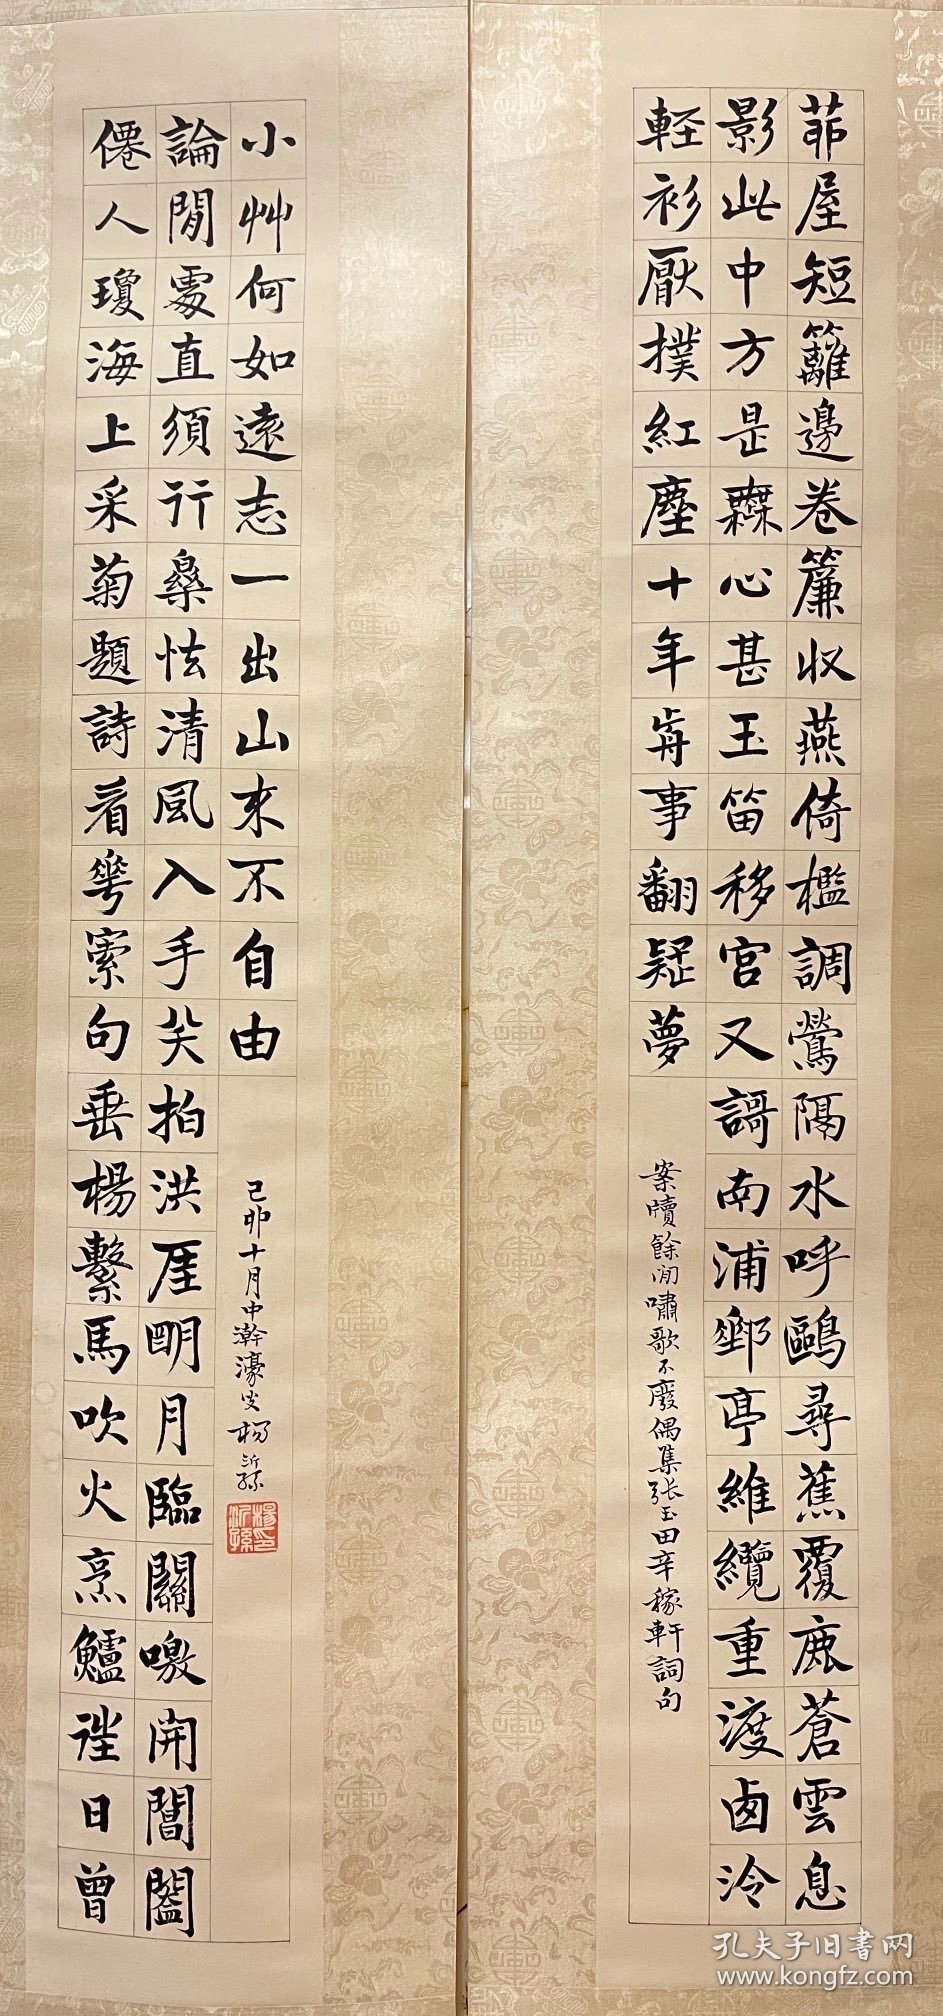 茆屋短籬邊卷簾收燕倚檻調鶯隔水呼鷗尋蕉覆鹿蒼雲息
影此中方是無心甚玉笛移宮又謌南浦郵亭維纜重渡西泠
輕衫厭撲紅塵十年歬事翻疑夢
案牘餘閒嘯歌不廢偶集張玉田辛稼軒詞句
僊人瓊海上采菊題詩看華索句垂楊繫馬吹火烹鱸往日曾
論閒處直須行樂清風入手笑拍洪厓朙月臨關噭開閶闔
小艸何如遠志一出山來不自由
己卯十月中澣濠叟楊沂孫
楊沂孫印
孔夫子旧書网
www.kongfz.com